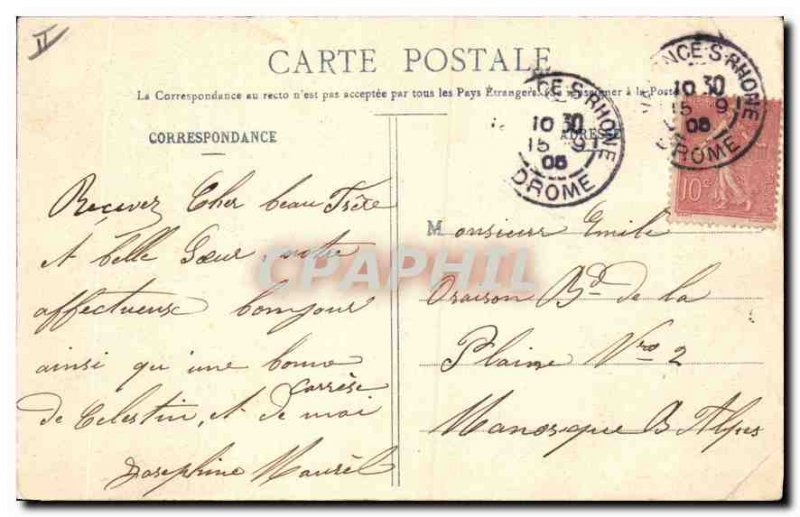 II
CARTE POSTALE
La Correspondance au recto n'est pas acceptée par tous les Pays Étrangers. (Se renseigner à la Poste
CORRESPONDANCE
ADRESSE
CE-S-RHONE
10 30
15 9
06
DROME
ENCE-S-RHONE
10 30
15 9
06
DROME
10c
Recevez Cher beau Frère
et belle Sœur, notre
affectueuse bonjour
ainsi qu'une bonne
caresse
de Celestin, et de moi
Josephine Maurel
Monsieur Emile
Oraison Bd de la
Plaine Nro 2
Manosque B Alpes
CPAPHIL